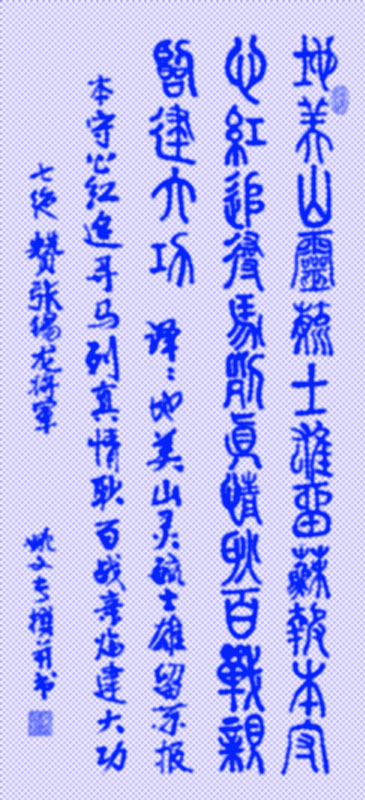 地美山靈毓士雄留蘇報本守
心紅追尋馬列真情耿百戰親
建大功 译：地美山灵毓士雄留苏报
本守心红追寻马列真情耿百战亲建大功
七绝 赞张锡龙将军 姚文撰并书